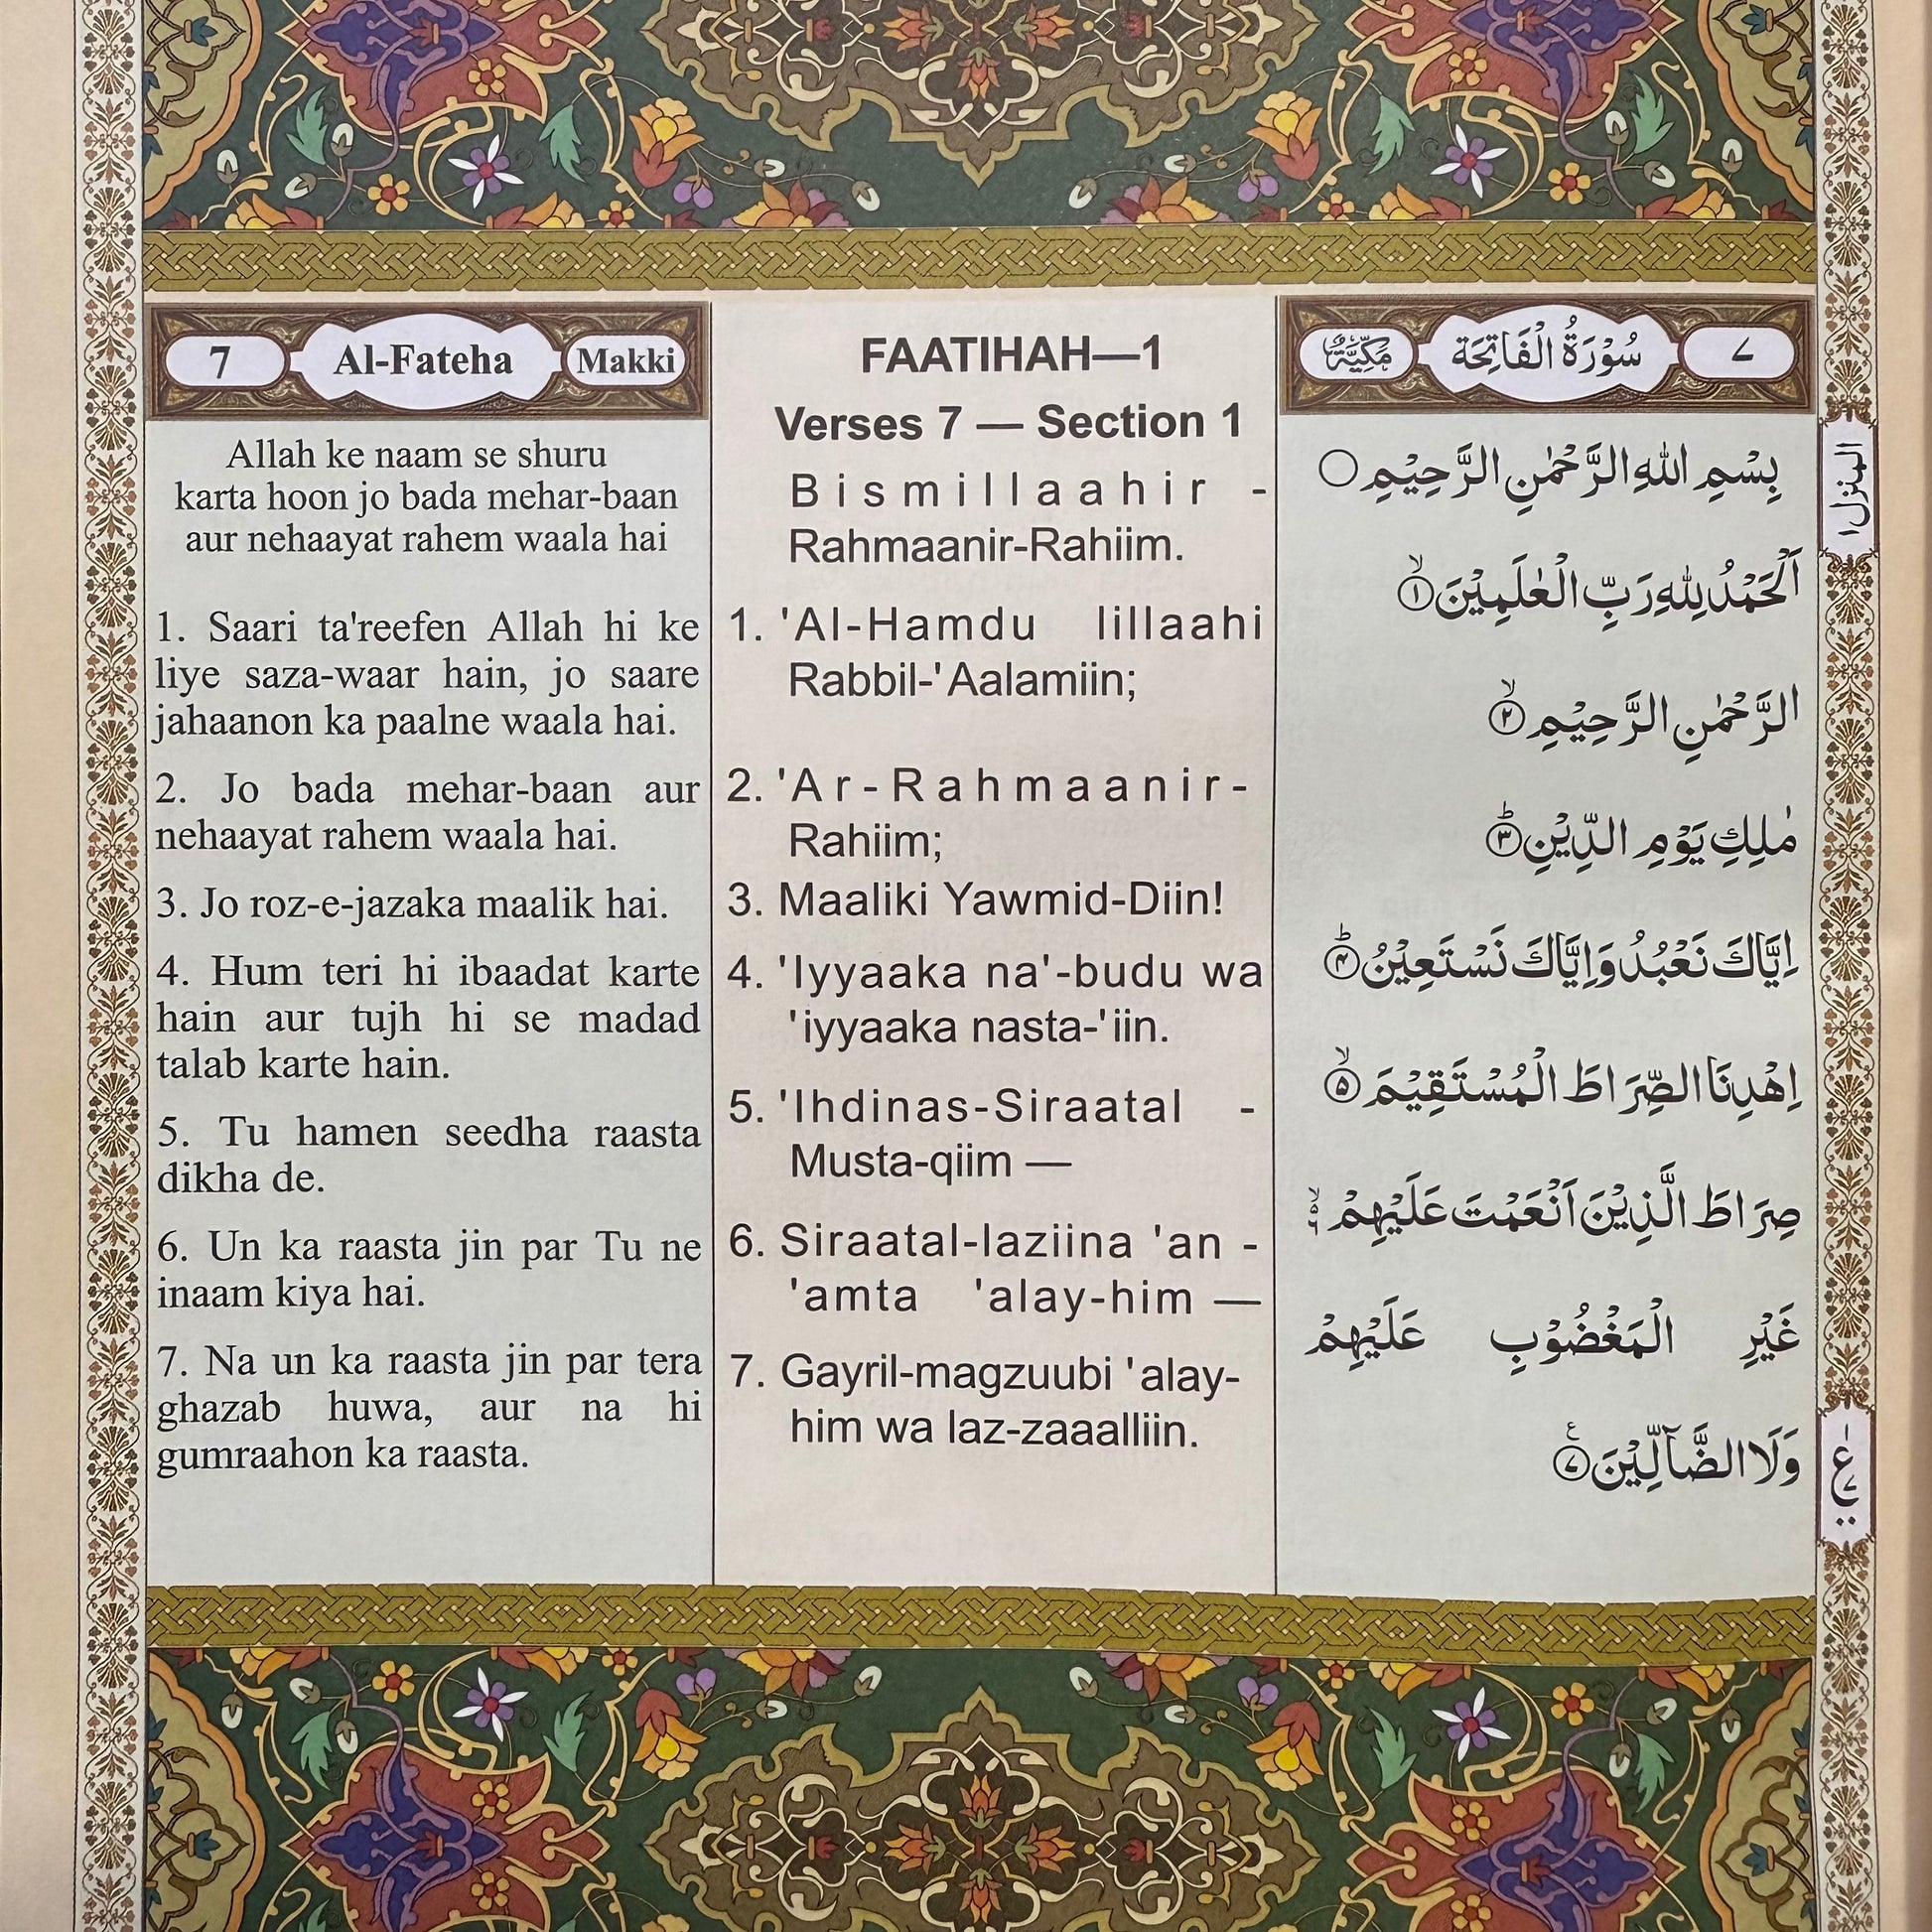 7 Al-Fateha Makki
Allah ke naam se shuru
karta hoon jo bada mehar-baan
aur nehaayat rahem waala hai
1. Saari ta'reefen Allah hi ke
liye saza-waar hain, jo saare
jahaanon ka paalne waala hai.
2. Jo bada mehar-baan aur
nehaayat rahem waala hai.
3. Jo roz-e-jazaka maalik hai.
4. Hum teri hi ibaadat karte
hain aur tujh hi se madad
talab karte hain.
5. Tu hamen seedha raasta
dikha de.
6. Un ka raasta jin par Tu ne
inaam kiya hai.
7. Na un ka raasta jin par tera
ghazab huwa, aur na hi
gumraahon ka raasta.
FAATIHAH—1
Verses 7 — Section 1
Bismillaahir -
Rahmaanir-Rahiim.
1. 'Al-Hamdu lillaahi
Rabbil-'Aalamiin;
2. 'Ar-Rahmaanir-
Rahiim;
3. Maaliki Yawmid-Diin!
4. 'Iyyaaka na'-budu wa
'iyyaaka nasta-'iin.
5. 'Ihdinas-Siraatal -
Musta-qiim —
6. Siraatal-laziina 'an -
'amta 'alay-him —
7. Gayril-magzuubi 'alay-
him wa laz-zaaalliin.
۷ سُوْرَةُ الْفَاتِحَة مَكِّيَّةٌ
بِسْمِ اللّٰهِ الرَّحْمٰنِ الرَّحِيْمِ ○
اَلْحَمْدُ لِلّٰهِ رَبِّ الْعٰلَمِيْنَ ۙ﴿۱﴾
الرَّحْمٰنِ الرَّحِيْمِ ۙ﴿۲﴾
مٰلِكِ يَوْمِ الدِّيْنِ ؕ﴿۳﴾
اِيَّاكَ نَعْبُدُ وَاِيَّاكَ نَسْتَعِيْنُ ؕ﴿۴﴾
اِهْدِنَا الصِّرَاطَ الْمُسْتَقِيْمَ ۙ﴿۵﴾
صِرَاطَ الَّذِيْنَ اَنْعَمْتَ عَلَيْهِمْ ۙ۶
غَيْرِ الْمَغْضُوْبِ عَلَيْهِمْ
وَلَا الضَّآلِّيْنَ ﴿۷﴾ع
المنزل ۱